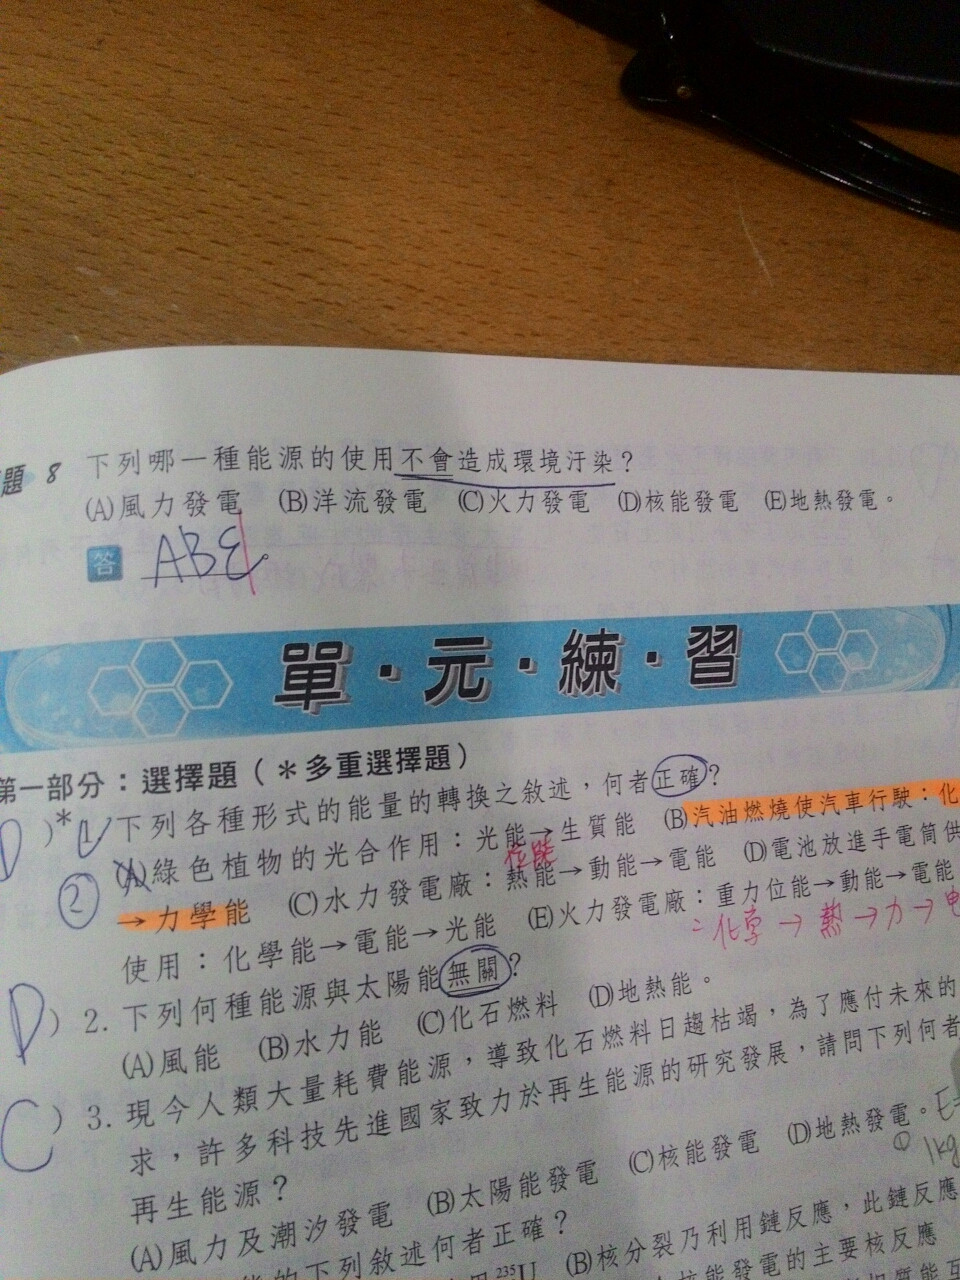 題 8 下列哪一種能源的使用不會造成環境汙染？
(A)風力發電 (B)洋流發電 (C)火力發電 (D)核能發電 (E)地熱發電。
答 ABE
單・元・練・習
第一部分：選擇題（＊多重選擇題）
D )*1. 下列各種形式的能量的轉換之敘述，何者正確？
(A)綠色植物的光合作用：光能→生質能 (B)汽油燃燒使汽車行駛：化
位能
② →力學能 (C)水力發電廠：熱能→動能→電能 (D)電池放進手電筒供
使用：化學能→電能→光能 (E)火力發電廠：重力位能→動能→電能
化學→熱→力→電
D ) 2. 下列何種能源與太陽能無關？
(A)風能 (B)水力能 (C)化石燃料 (D)地熱能。
C ) 3. 現今人類大量耗費能源，導致化石燃料日趨枯竭，為了應付未來的
求，許多科技先進國家致力於再生能源的研究發展，請問下列何者
再生能源？
(A)風力及潮汐發電 (B)太陽能發電 (C)核能發電 (D)地熱發電。
E=
① 1kg
能的下列敘述何者正確？
(B)核分裂乃利用鏈反應，此鏈反應
用²³⁵U
核能發電的主要核反應